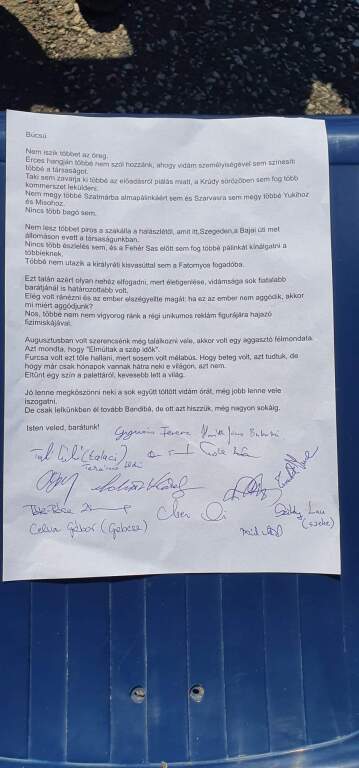 Búcsú
Nem iszik többet az öreg.
Érces hangján többé nem szól hozzánk, ahogy vidám személyiségével sem színesíti
többé a társaságot.
Taki sem zavarja ki többé az előadásról piálás miatt, a Krúdy sörözőben sem fog több
kommerszet leküldeni.
Nem megy többé Szatmárba almapálinkáért sem és Szarvasra sem megy többé Yukihoz
és Misohoz.
Nincs több bagó sem.
Nem lesz többet piros a szakálla a halászlétől, amit itt,Szegeden,a Bajai úti met
állomáson evett a társaságunkban.
Nincs több észlelés sem, és a Fehér Sas előtt sem fog többé pálinkát kínálgatni a
többieknek.
Többé nem utazik a királyréti kisvasúttal sem a Fatornyos fogadóba.
Ezt talán azért olyan nehéz elfogadni, mert életigenlése, vidámsága sok fiatalabb
barátjánál is határozottabb volt.
Elég volt ránézni és az ember elszégyellte magát: ha ez az ember nem aggódik, akkor
mi miért aggódjunk?
Nos, többé nem nem vigyorog ránk a régi unikumos reklám figurájára hajazó
fizimiskájával.
Augusztusban volt szerencsénk még találkozni vele, akkor volt egy aggasztó félmondata.
Azt mondta, hogy "Elmúltak a szép idők".
Furcsa volt ezt tőle hallani, mert sosem volt mélabús. Hogy beteg volt, azt tudtuk, de
hogy már csak hónapok vannak hátra neki e világon, azt nem.
Eltűnt egy szín a palettáról, kevesebb lett a világ.
Jó lenne megköszönni neki a sok együtt töltött vidám órát, még jobb lenne vele
iszogatni.
De csak lelkünkben él tovább Bandibá, de ott azt hiszzük, még nagyon sokáig.
Isten veled, barátunk!
Ferenc
Celin Gábor (Gabeee)